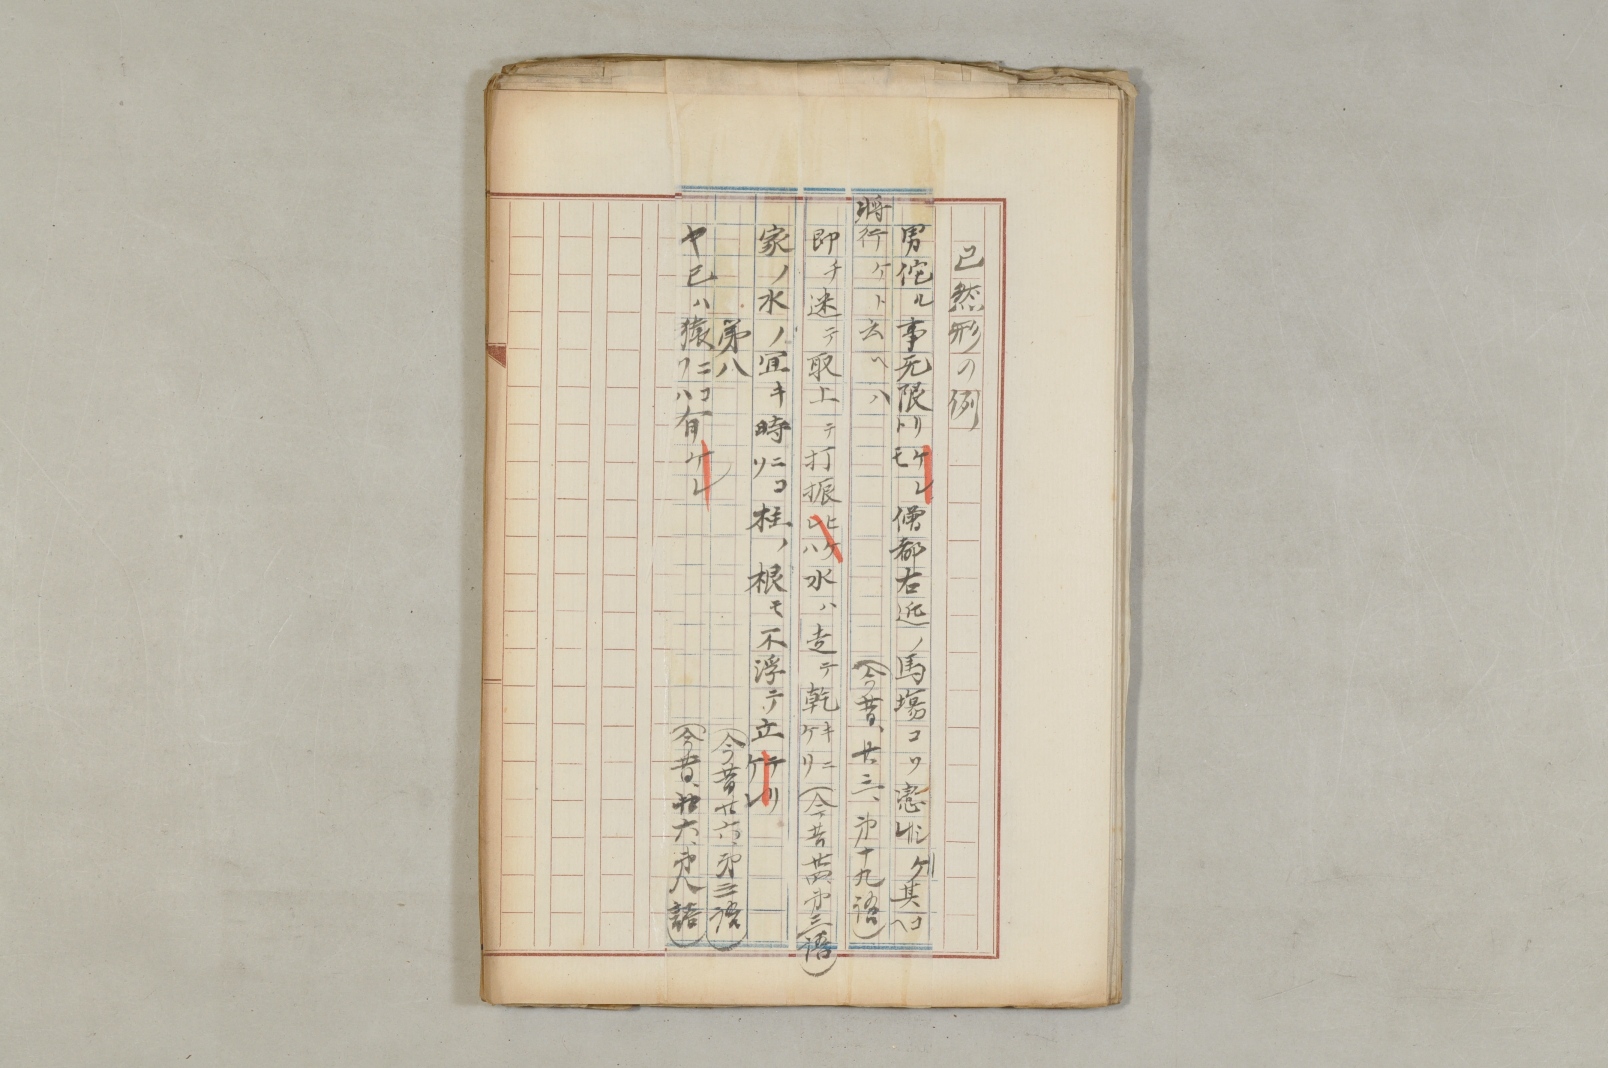 已然形の例
男侘ル事无限リケレトモ僧都右近ノ馬場コソ其コヘ
将行ケト云ヘハ
(今昔、廿三、第十九語)
即チ迷テ取上テ打振ヒケレハ水ハ走テ乾キニケリ(今昔廿四第三語)
家ノ水ノ宜キ時ニコソ柱ノ根モ不浮テ立テリケレ
第八
(今昔廿六、第三語)
ヤ己ハ猿ニコソハ有ケレ
(今昔、廿六、第八語)